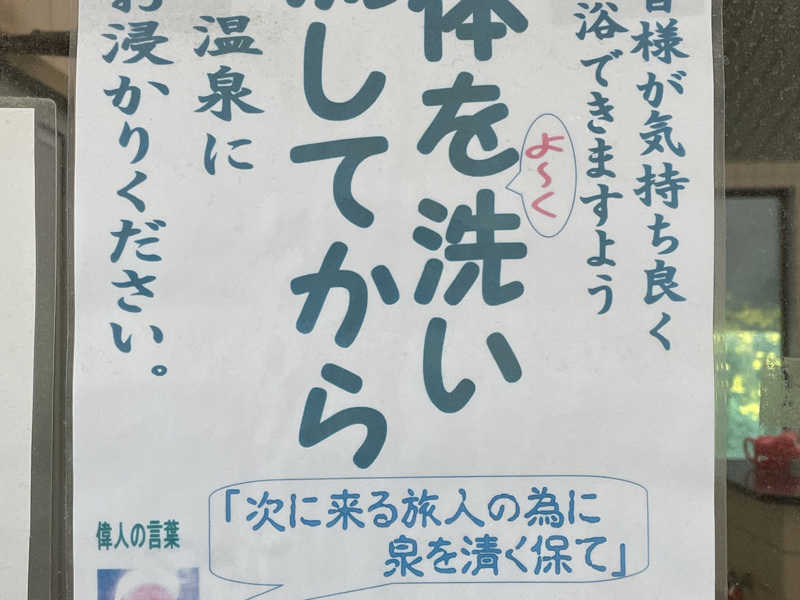 皆様が気持ち良く
浴できますよう
体を洗い
よ〜く
流してから
温泉に
お浸かりください。
偉人の言葉
「次に来る旅人の為に
泉を清く保て」